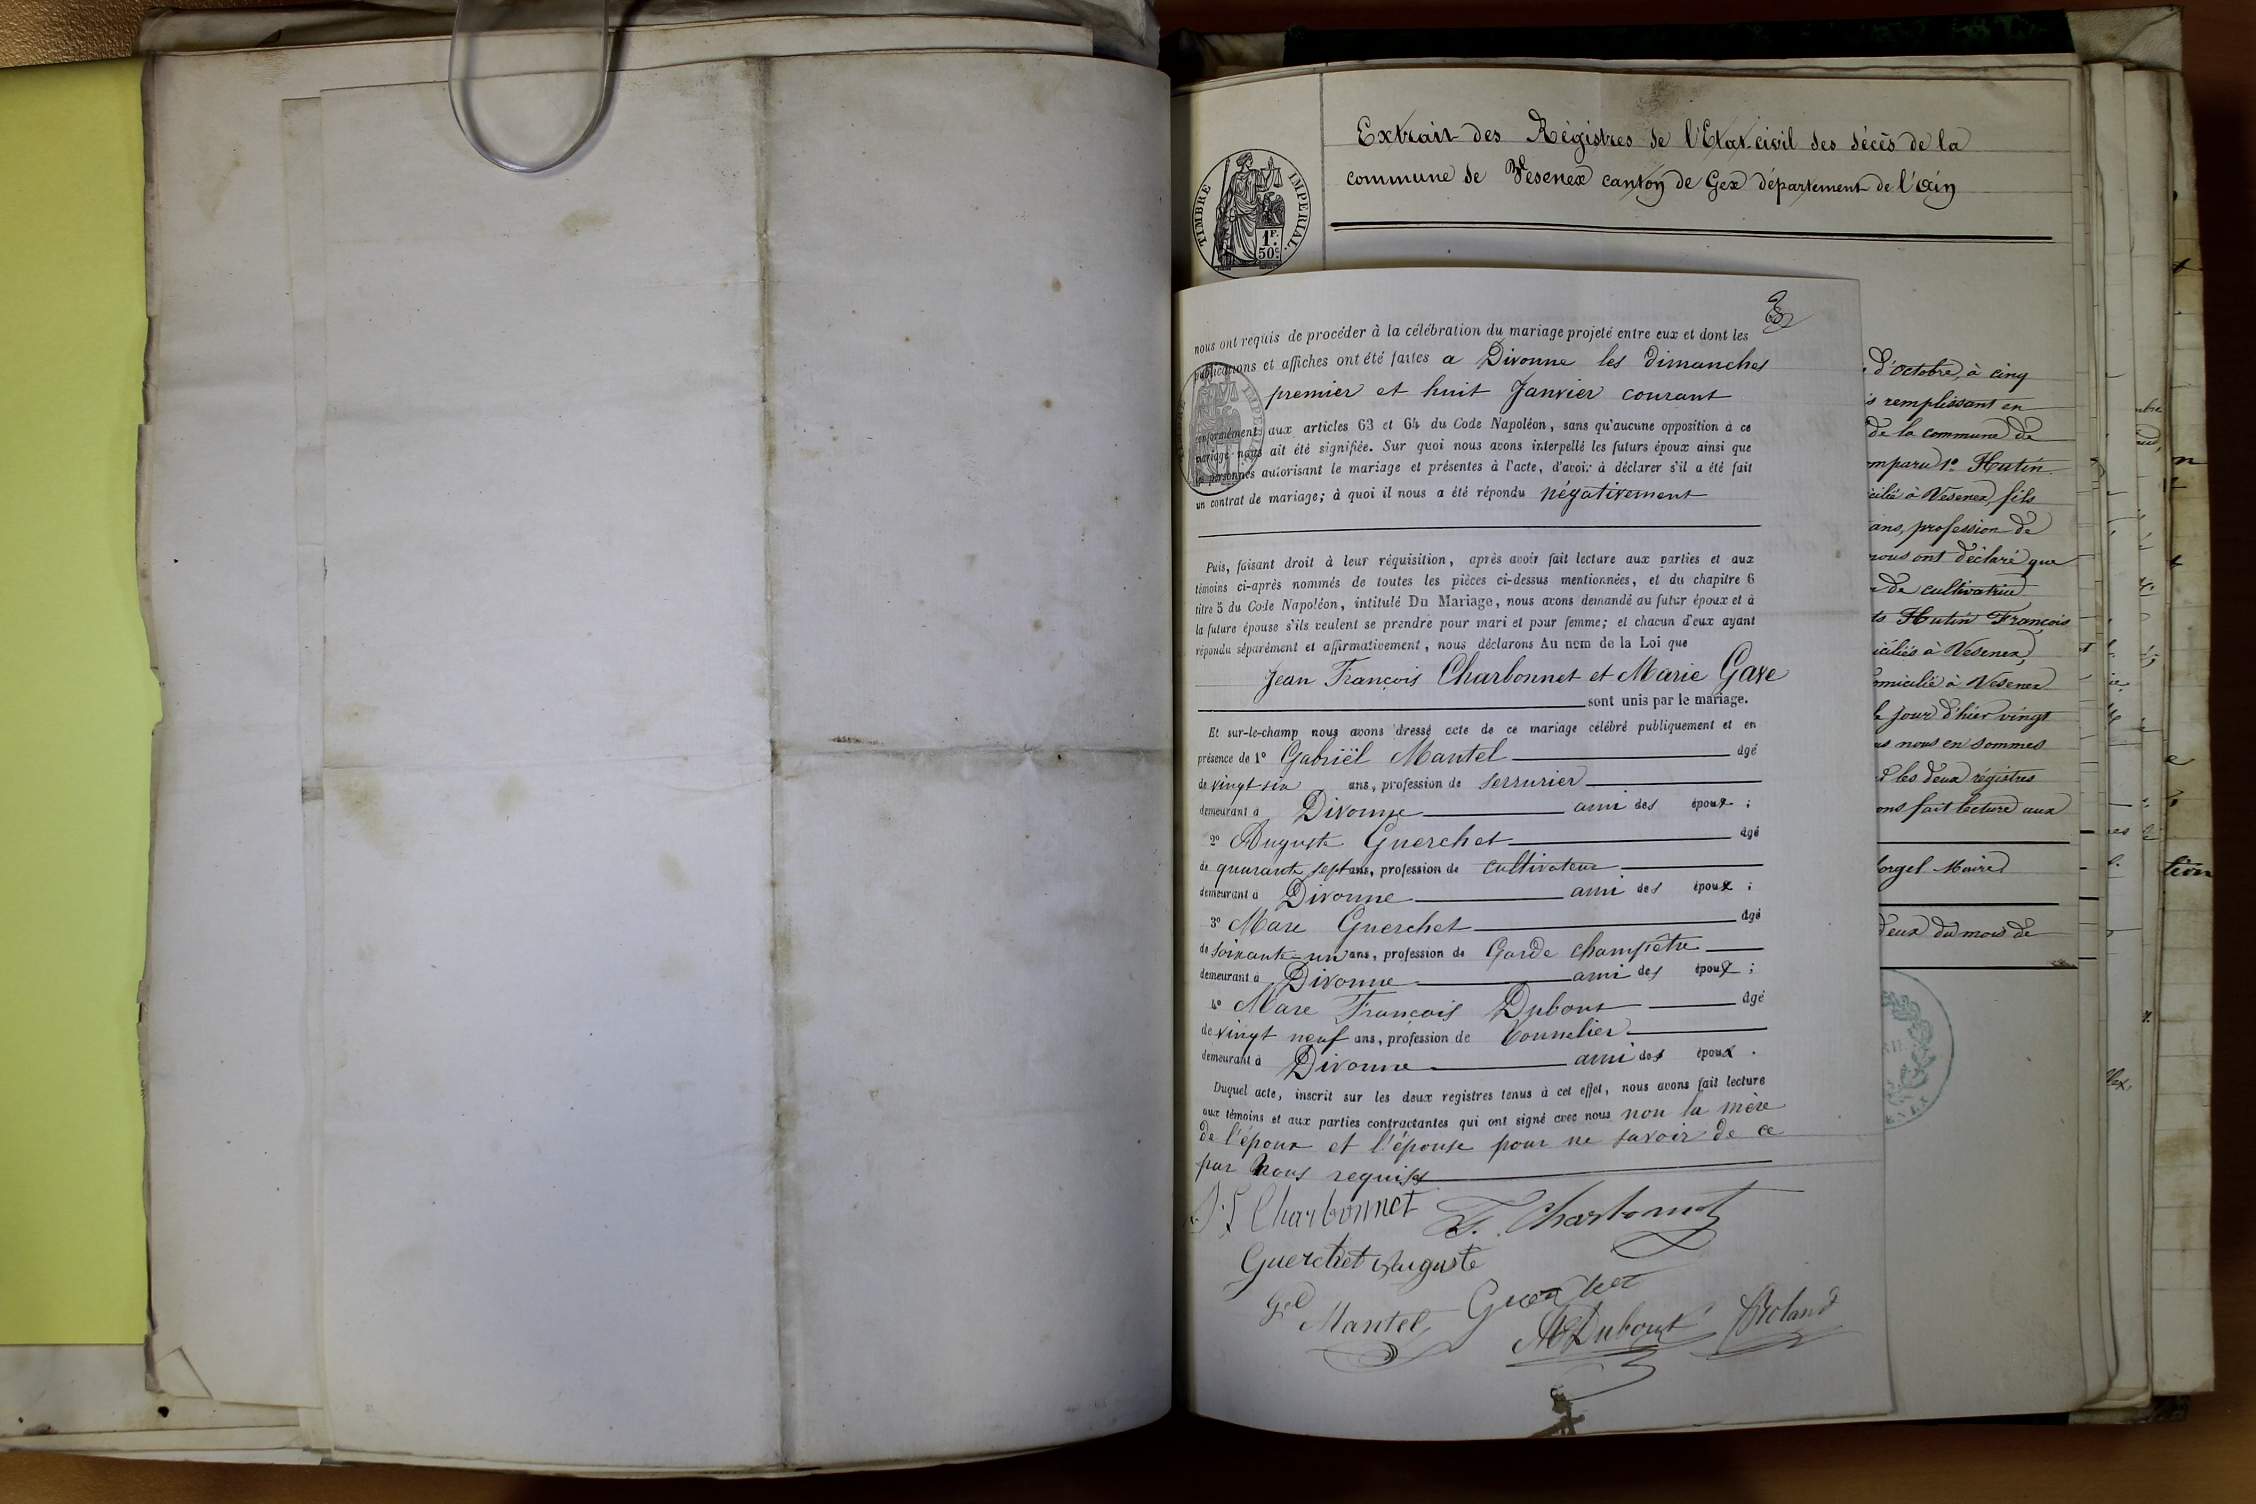 Extrait des Régistres de l'Etat civil des décès de la
commune de Vesenex canton de Gex département de l'ain
TIMBRE IMPERIAL.
1F.
50c
nous ont requis de procéder à la célébration du mariage projeté entre eux et dont les
publications et affiches ont été faites a Divonne les dimanches
premier et huit Janvier courant
conformément aux articles 63 et 64 du Code Napoléon, sans qu'aucune opposition à ce
mariage nous ait été signifiée. Sur quoi nous avons interpellé les futurs époux ainsi que
les personnes autorisant le mariage et présentes à l'acte, d'avoir à déclarer s'il a été fait
un contrat de mariage; à quoi il nous a été répondu négativement
Puis, faisant droit à leur réquisition, après avoir fait lecture aux parties et aux
témoins ci-après nommés de toutes les pièces ci-dessus mentionnées, et du chapitre 6
titre 5 du Code Napoléon, intitulé Du Mariage, nous avons demandé au futur époux et à
la future épouse s'ils veulent se prendre pour mari et pour femme; et chacun d'eux ayant
répondu séparément et affirmativement, nous déclarons Au nom de la Loi que
Jean François Charbonnet et Marie Gave
sont unis par le mariage.
Et sur-le-champ nous avons dressé acte de ce mariage célébré publiquement et en
présence de 1° Gabriël Mantel âgé
de vingt six ans, profession de serrurier
demeurant à Divonne ami des époux ;
2° Auguste Guerchet âgé
de quarante sept ans, profession de cultivateur
demeurant à Divonne ami des époux ;
3° Marc Guerchet âgé
de soixante-un ans, profession de Garde champêtre
demeurant à Divonne ami des époux ;
4° Marc François Dubout âgé
de vingt neuf ans, profession de Tonnelier
demeurant à Divonne ami des époux .
Duquel acte, inscrit sur les deux registres tenus à cet effet, nous avons fait lecture
aux témoins et aux parties contractantes qui ont signé avec nous non la mère
de l'époux et l'épouse pour ne savoir de ce
par nous requises
Charbonnet F. Charbonnet
Guerchet Auguste
Mantel Guerchet
Dubout Roland
d'Octobre, à cinq
remplissant en
de la commune de
1° Hutin
à Vesenex, fils
ans, profession de
nous ont déclaré que
de cultivatrice
Hutin François
à Vesenex,
à Vesenex
jour d'hier vingt
nous en sommes
les deux régistres
fait lecture aux
Maire
deux du mois de